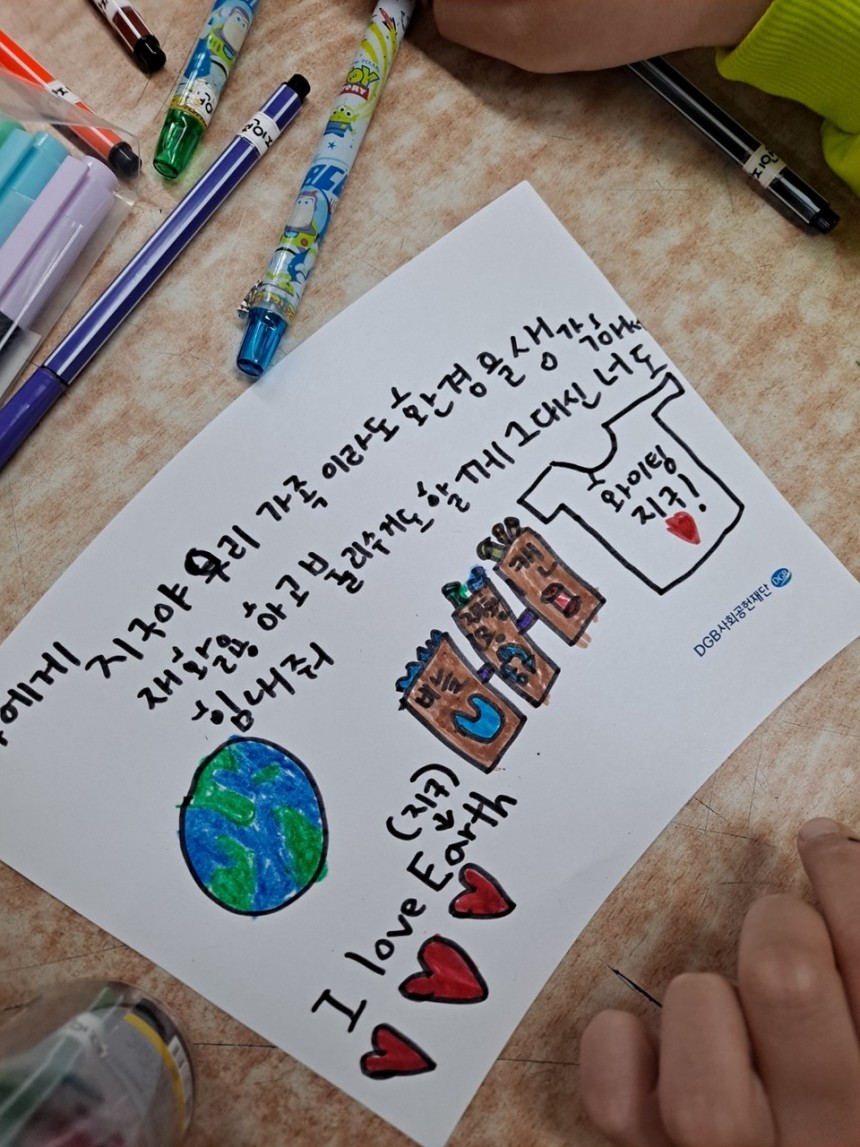 에게
지구야 우리 가족 이라도 환경을 생각해서
재활용 하고 빌려쓰게도 할께 그대신 너도
힘내줘
화이팅
지구!
캔
비닐
(지구)
I love Earth
DGB사회공헌재단 DGB
TOY STORY
지안